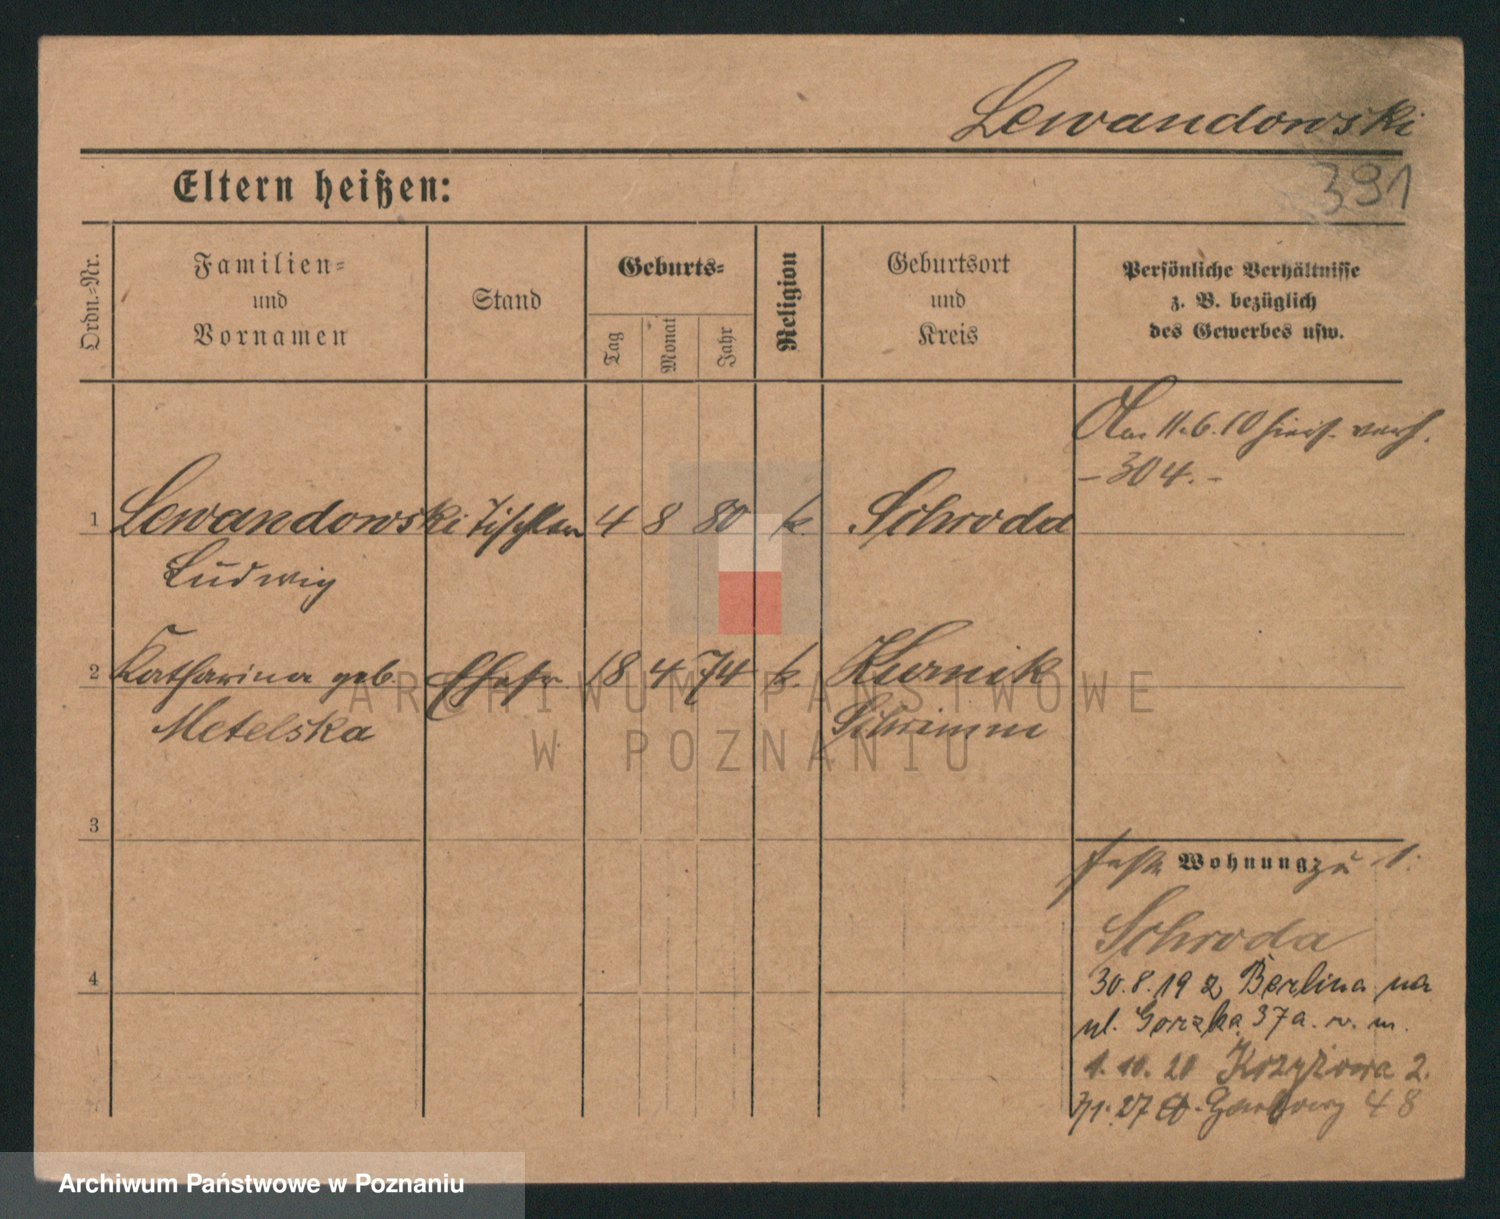 Lewandowski
391
Eltern heißen:
Ordn.-Nr.
Familien-
und
Vornamen
Stand
Geburts-
Tag
Monat
Jahr
Religion
Geburtsort
und
Kreis
Persönliche Verhältnisse
z. B. bezüglich
des Gewerbes usw.
Am 11.6.10 hier verh.
- 304. -
1 Lewandowski Tischler 4 8 80 k. Schroda
Ludwig
2 Katharina geb. Ehefr 18 4 74 k. Kurnik
Metelska Schrimm
ARCHIWUM PAŃSTWOWE
W POZNANIU
3
Wohnung zu 1.
Schroda
4
30.8.19 z Berlina na
ul. Gorzka 37a. w. m.
1.10.20 Krzyżowa 2.
27 Garbary 48
Archiwum Państwowe w Poznaniu